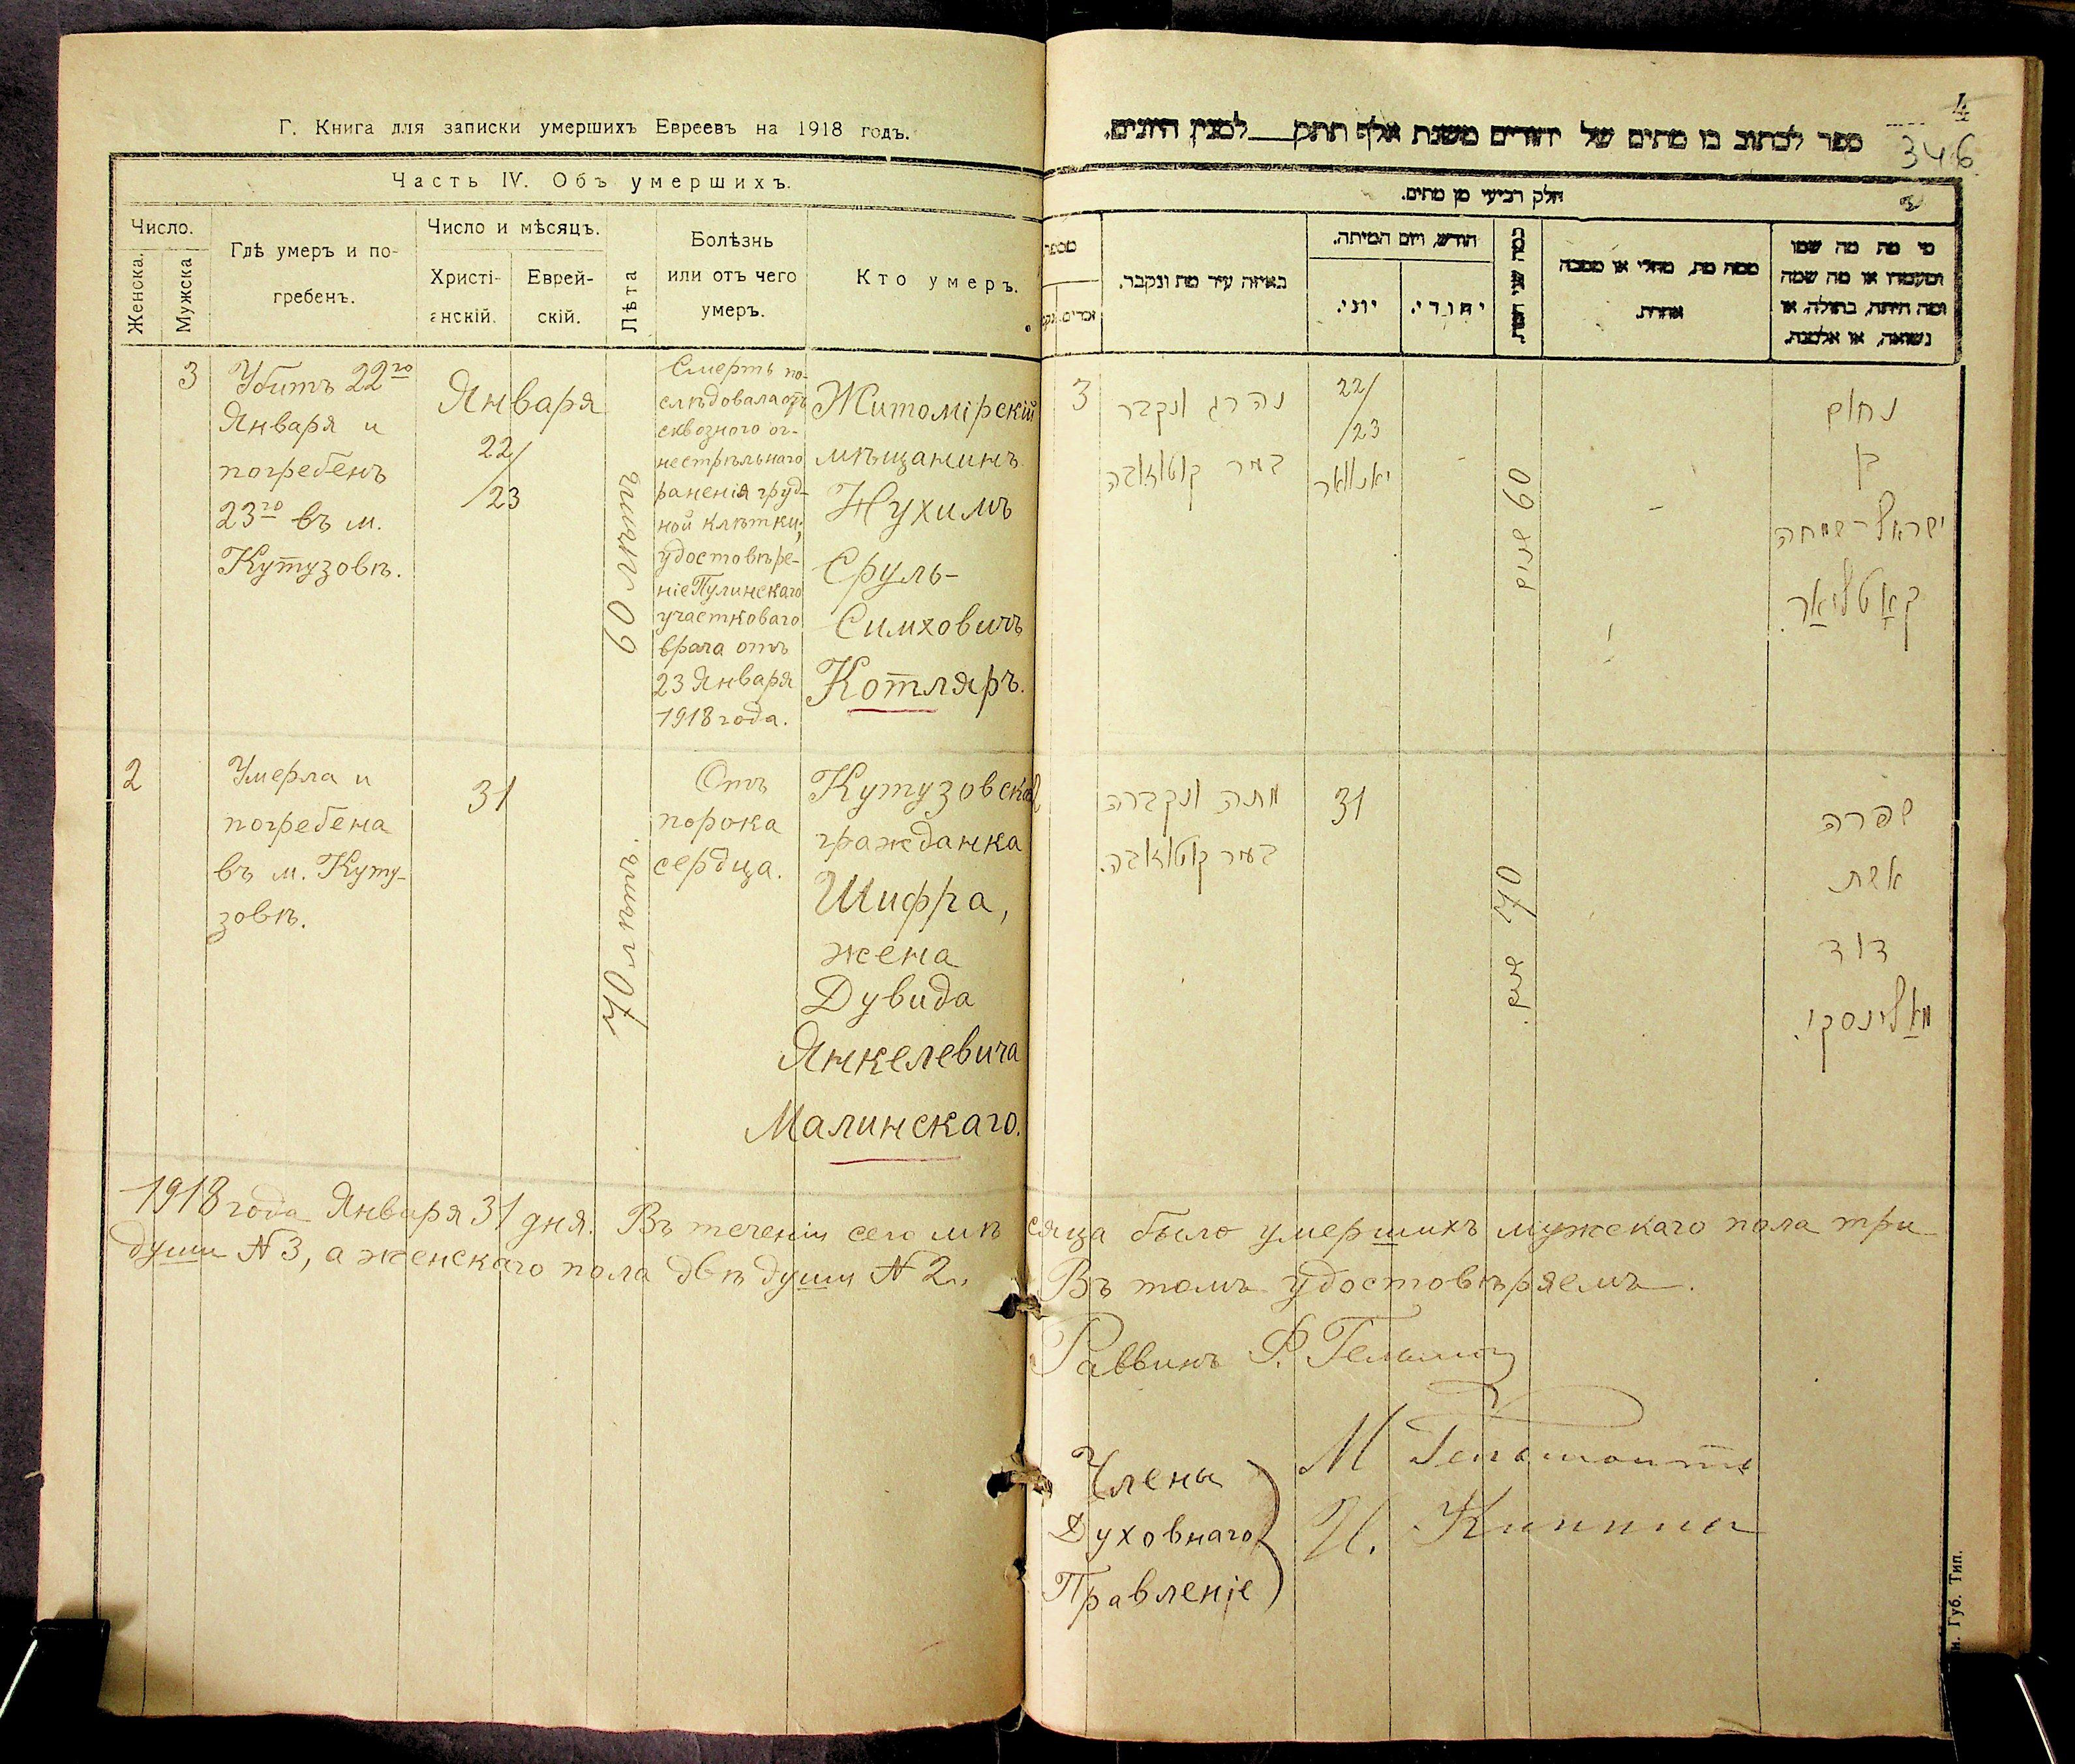 Г. Книга для записки умершихъ Евреевъ на 1918 годъ.
Часть IV. Объ умершихъ.
Число.
Женска.
Мужска
Гдѣ умеръ и по-
гребенъ.
Число и мѣсяцъ.
Христі-
анскій.
Еврей-
скій.
Лѣта
Болѣзнь
или отъ чего
умеръ.
Кто умеръ.
3
Убитъ 22го
Января и
погребенъ
23го въ м.
Кутузовѣ.
Января
22/
/23
60 лѣтъ
Смерть по-
слѣдовала отъ
сквозного ог-
нестрѣльнаго
раненія груд-
ной клѣтки,
удостовѣре-
ніе Пулинскаго
участковаго
врача отъ
23 Января
1918 года.
Житомірскій
мѣщанинъ
Нухимъ
Сруль-
Симховичъ
Котляръ.
2
Умерла и
погребена
въ м. Куту-
зовѣ.
31
70 лѣтъ.
Отъ
порока
сердца.
Кутузовская
гражданка
Шифра,
жена
Дувида
Янкелевича
Малинскаго.
4
346
ספר לכתוב בו מתים של יהודים משנת אלף תתק___למנין היונים.
חלק רביעי מן מתים.
מספר
באיזה עיר מת ונקבר.
חודש, ויום המיתה.
יוני.
יהודי.
כמה שני המת.
ממה מת, מחלי או מסבה
אחרת.
מי מת מה שמו
ומעמדו או מה שמה
ומה היתה, בתולה, או
נשואה, או אלמנה.
3
נהרג ונקבר
בעיר קוטוזובה
22/
/23
יאנוואר
60 שנים
נחום
בן
ישראל-שמחה
קאָטליאַר.
מתה ונקברה
בעיר קוטוזובה.
31
70 שנים.
שפרה
אשת
דוד
מאַלינסקי.
1918 года Января 31 дня. Въ теченіи сего мѣсяца было умершихъ мужскаго пола три
души № 3, а женскаго пола двѣ души № 2. Въ томъ удостовѣряемъ.
Раввинъ
Члены
Духовнаго
Правленіе
М
И.
Губ. Тип.